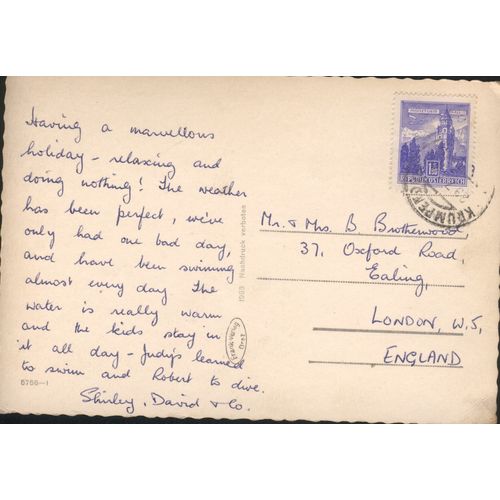 Having a marvellous
holiday - relaxing and
doing nothing! The weather
has been perfect, we've
only had one bad day,
and have been swimming
almost every day The
water is really warm
and the kids stay in
it all day - Judy's learned
to swim and Robert to dive.
Shirley, David & Co.
5756-1
1963 Nachdruck verboten
Frank Verlag
Graz
REPUBLIK ÖSTERREICH
KRUMPEN
Mr. & Mrs. B Brotherwood
37, Oxford Road,
Ealing,
LONDON, W.5,
ENGLAND